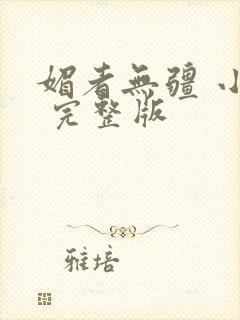 媚者無疆 小
完整版
雅培